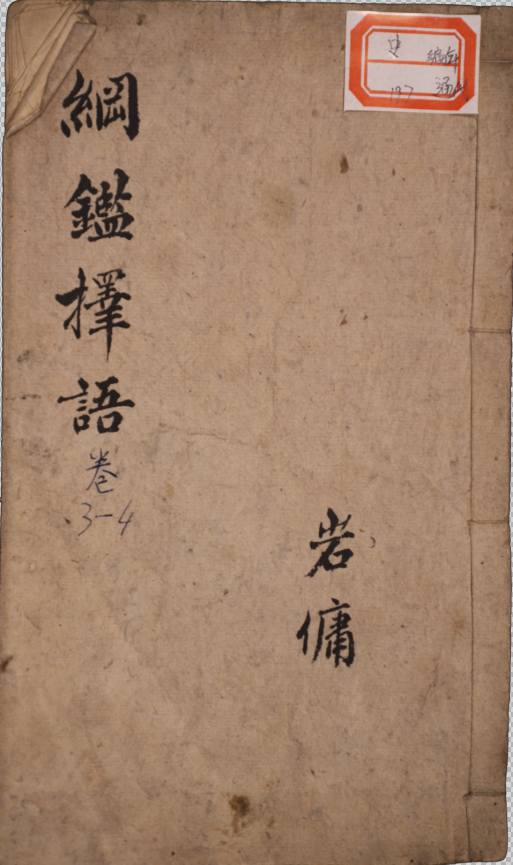 史
編年
通?
197
岩傭
綱鑑擇語
卷
3-4